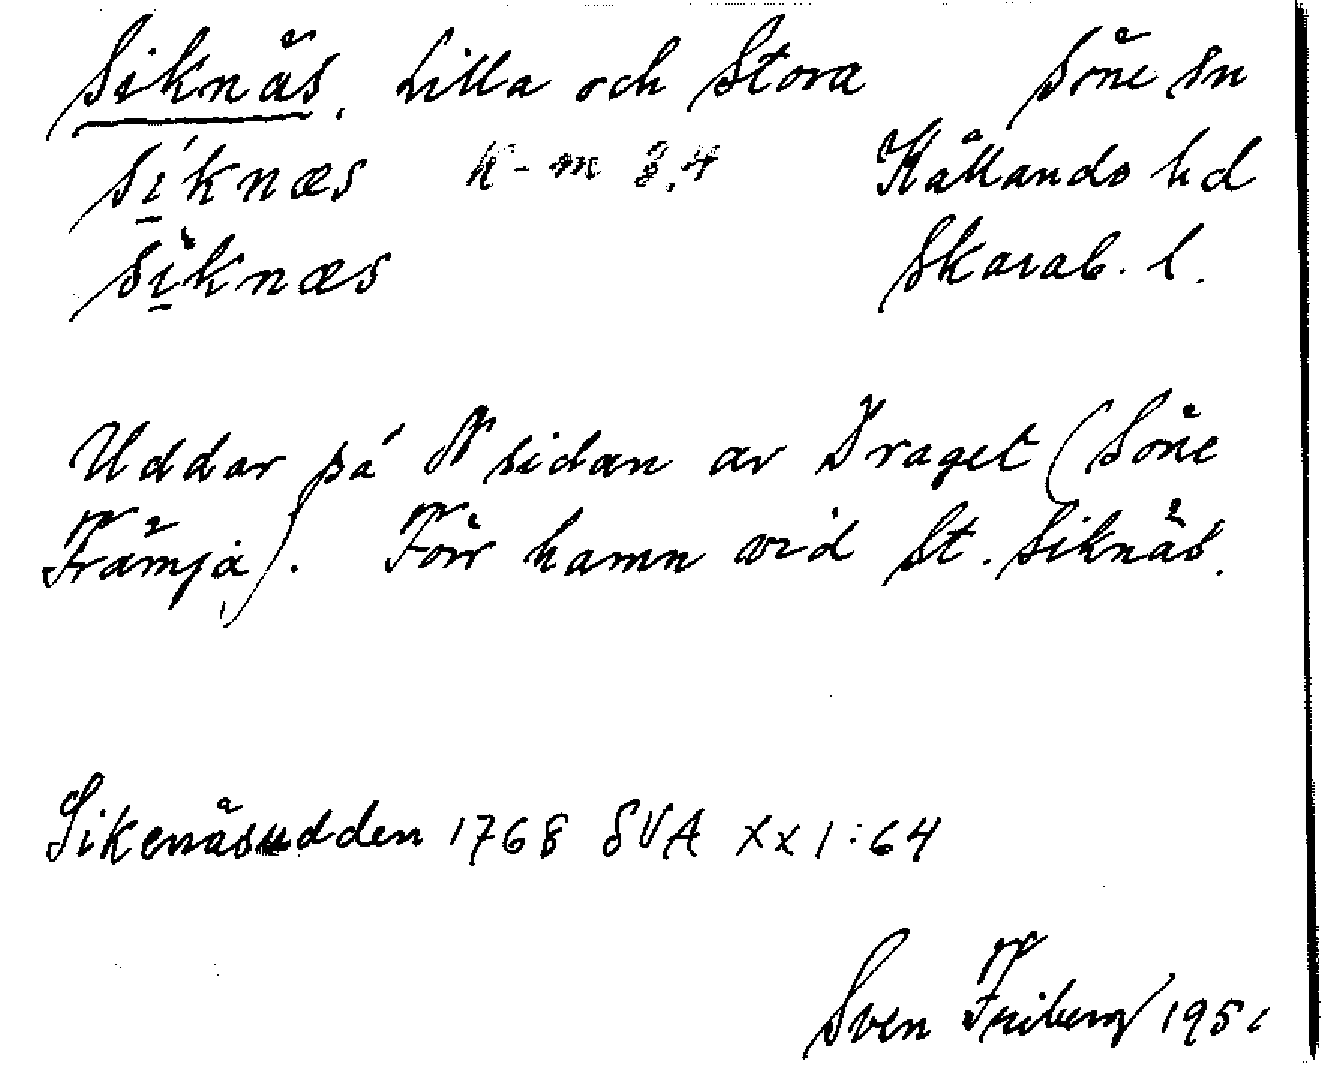 Siknäs, Lilla och Stora Söne sn
sí̲knæs K-m 3,4 Kållands hd
sì̲knæs Skarab. l.
Uddar på N sidan av Draget (Söne
Främja). Förr hamn vid St. Siknäs.
Sikenäsudden 1768 SVA XX1:64
Sven Friberg 1951